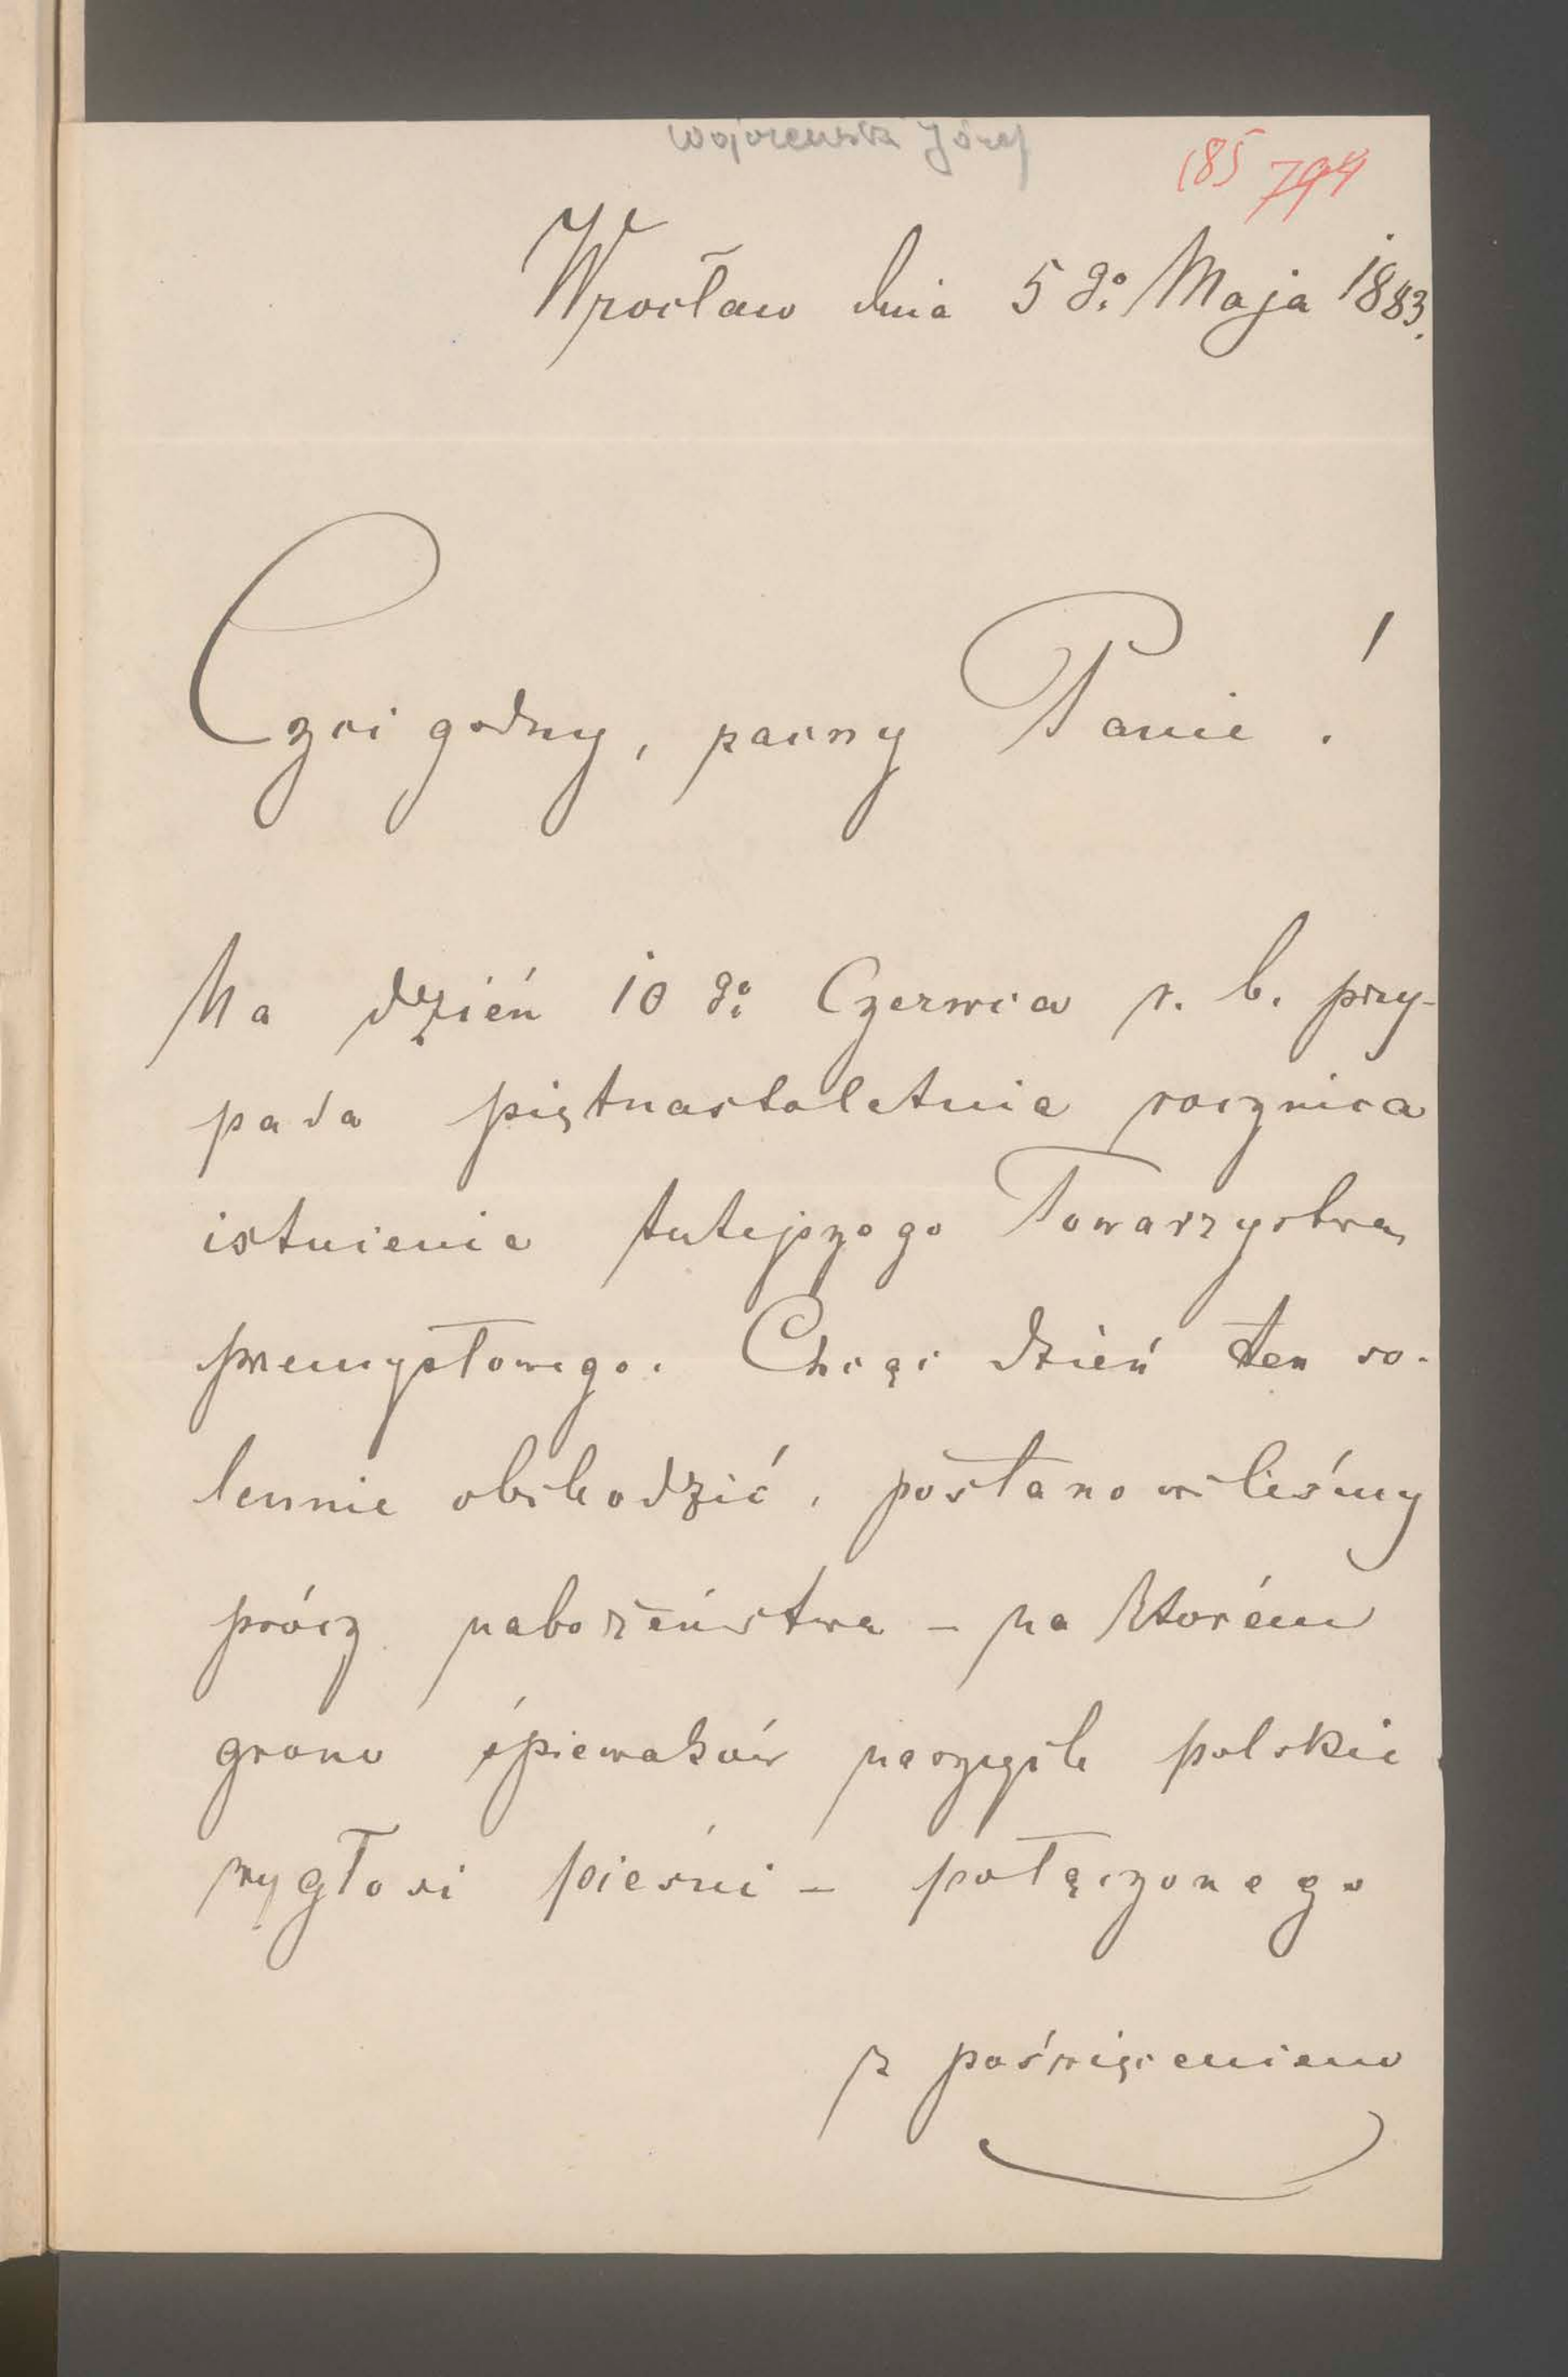 Józef
185 794
Wrocław dnia 5 go Maja 1883.
Czci godny, zacny Panie!
Na dzień 10 go Czerwca r. b. przy-
pada piętnastoletnia rocznica
istnienia tutejszego Towarzystwa
przemysłowego. Chcąc dzień ten so-
lennie obchodzić, postanowiliśmy
prócz nabożeństwa – na którém
grono śpiewaków naszych polskie
wygłosi pieśni – połączonego
z poświęceniem